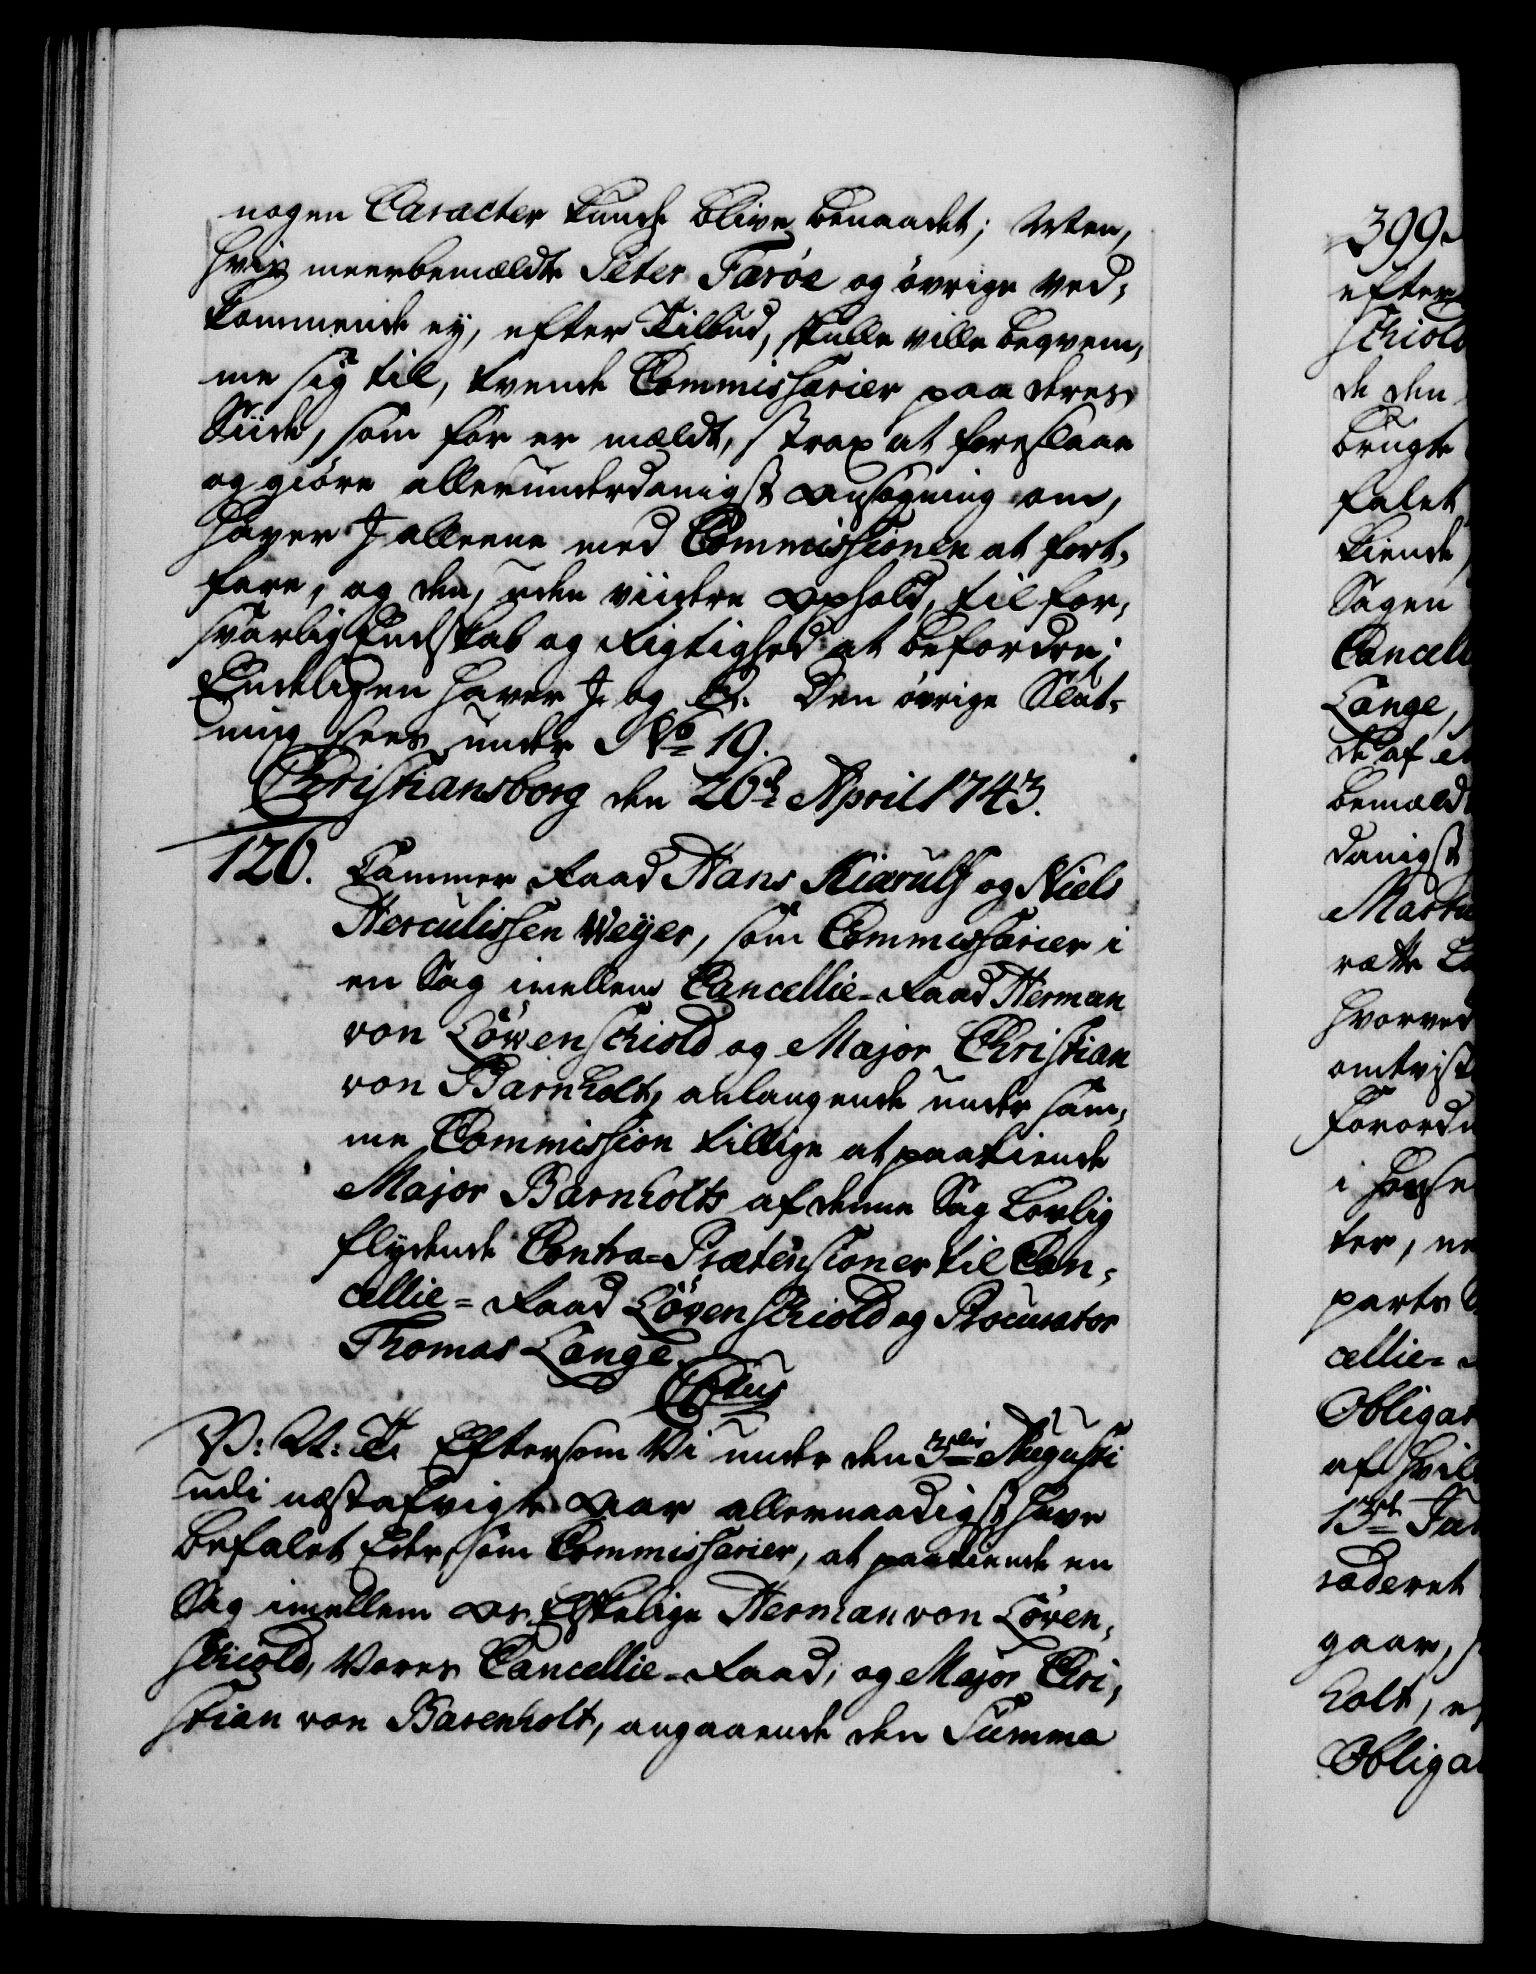 nogen Caracter kunde blive benaadet; Men,
hvis meerbemældte Peter Færöe og övrige ved-
kommende ey, efter Tilbud, skulle ville beqvem-
me sig til, tvende Commissarier paa deres
Siide, som för er mældt, strax at foreslaae
og giöre allerunderdanigst Ansögning om,
haver I alleene med Commissionen at fort-
fare, og den, uden viidere Ophold, til for-
svarlig Endskab og Rigtighed at befordre;
Endeligen haver I og &c. Den övrige Slut-
ning sees under No 19.
Christiansborg den 26de April 1743.
126. Cammer Raad Hans Kiærulf og Niels
Herculissen Weyer, som Commissarier i
en Sag imellem Cancellie-Raad Herman
von Löwenschiold og Major Christian
von Barnholt, anlangende under sam-
me Commission tillige at paakiende
Major Barnholts af denne Sag Lovlig
flydende Contra-Prætensioner til Can-
cellie-Raad Lövenschiold og Procurator
Thomas Lange.
V: A: T: Eftersom Vi under den 3die Augusti
udi næstafvigte Aar allernaadigst have
befalet Eder, som Commissarier, at paakiende en
Sag imellem Os Elskelige Herman von Löven-
schiold, Vores Cancellie-Raad, og Major Chri-
stian von Barenholt, angaaende den Summa
399.
efter
schiold
de den
brugte
falet
kiende
Sagen
Cancell
Lange,
de af
bemæld
danigst
rætte
hvorved
omtvist
Forordn
i
ter,
parts
cellie-
Obligat
af hvil
13de
gaar,
holt,
Obliga